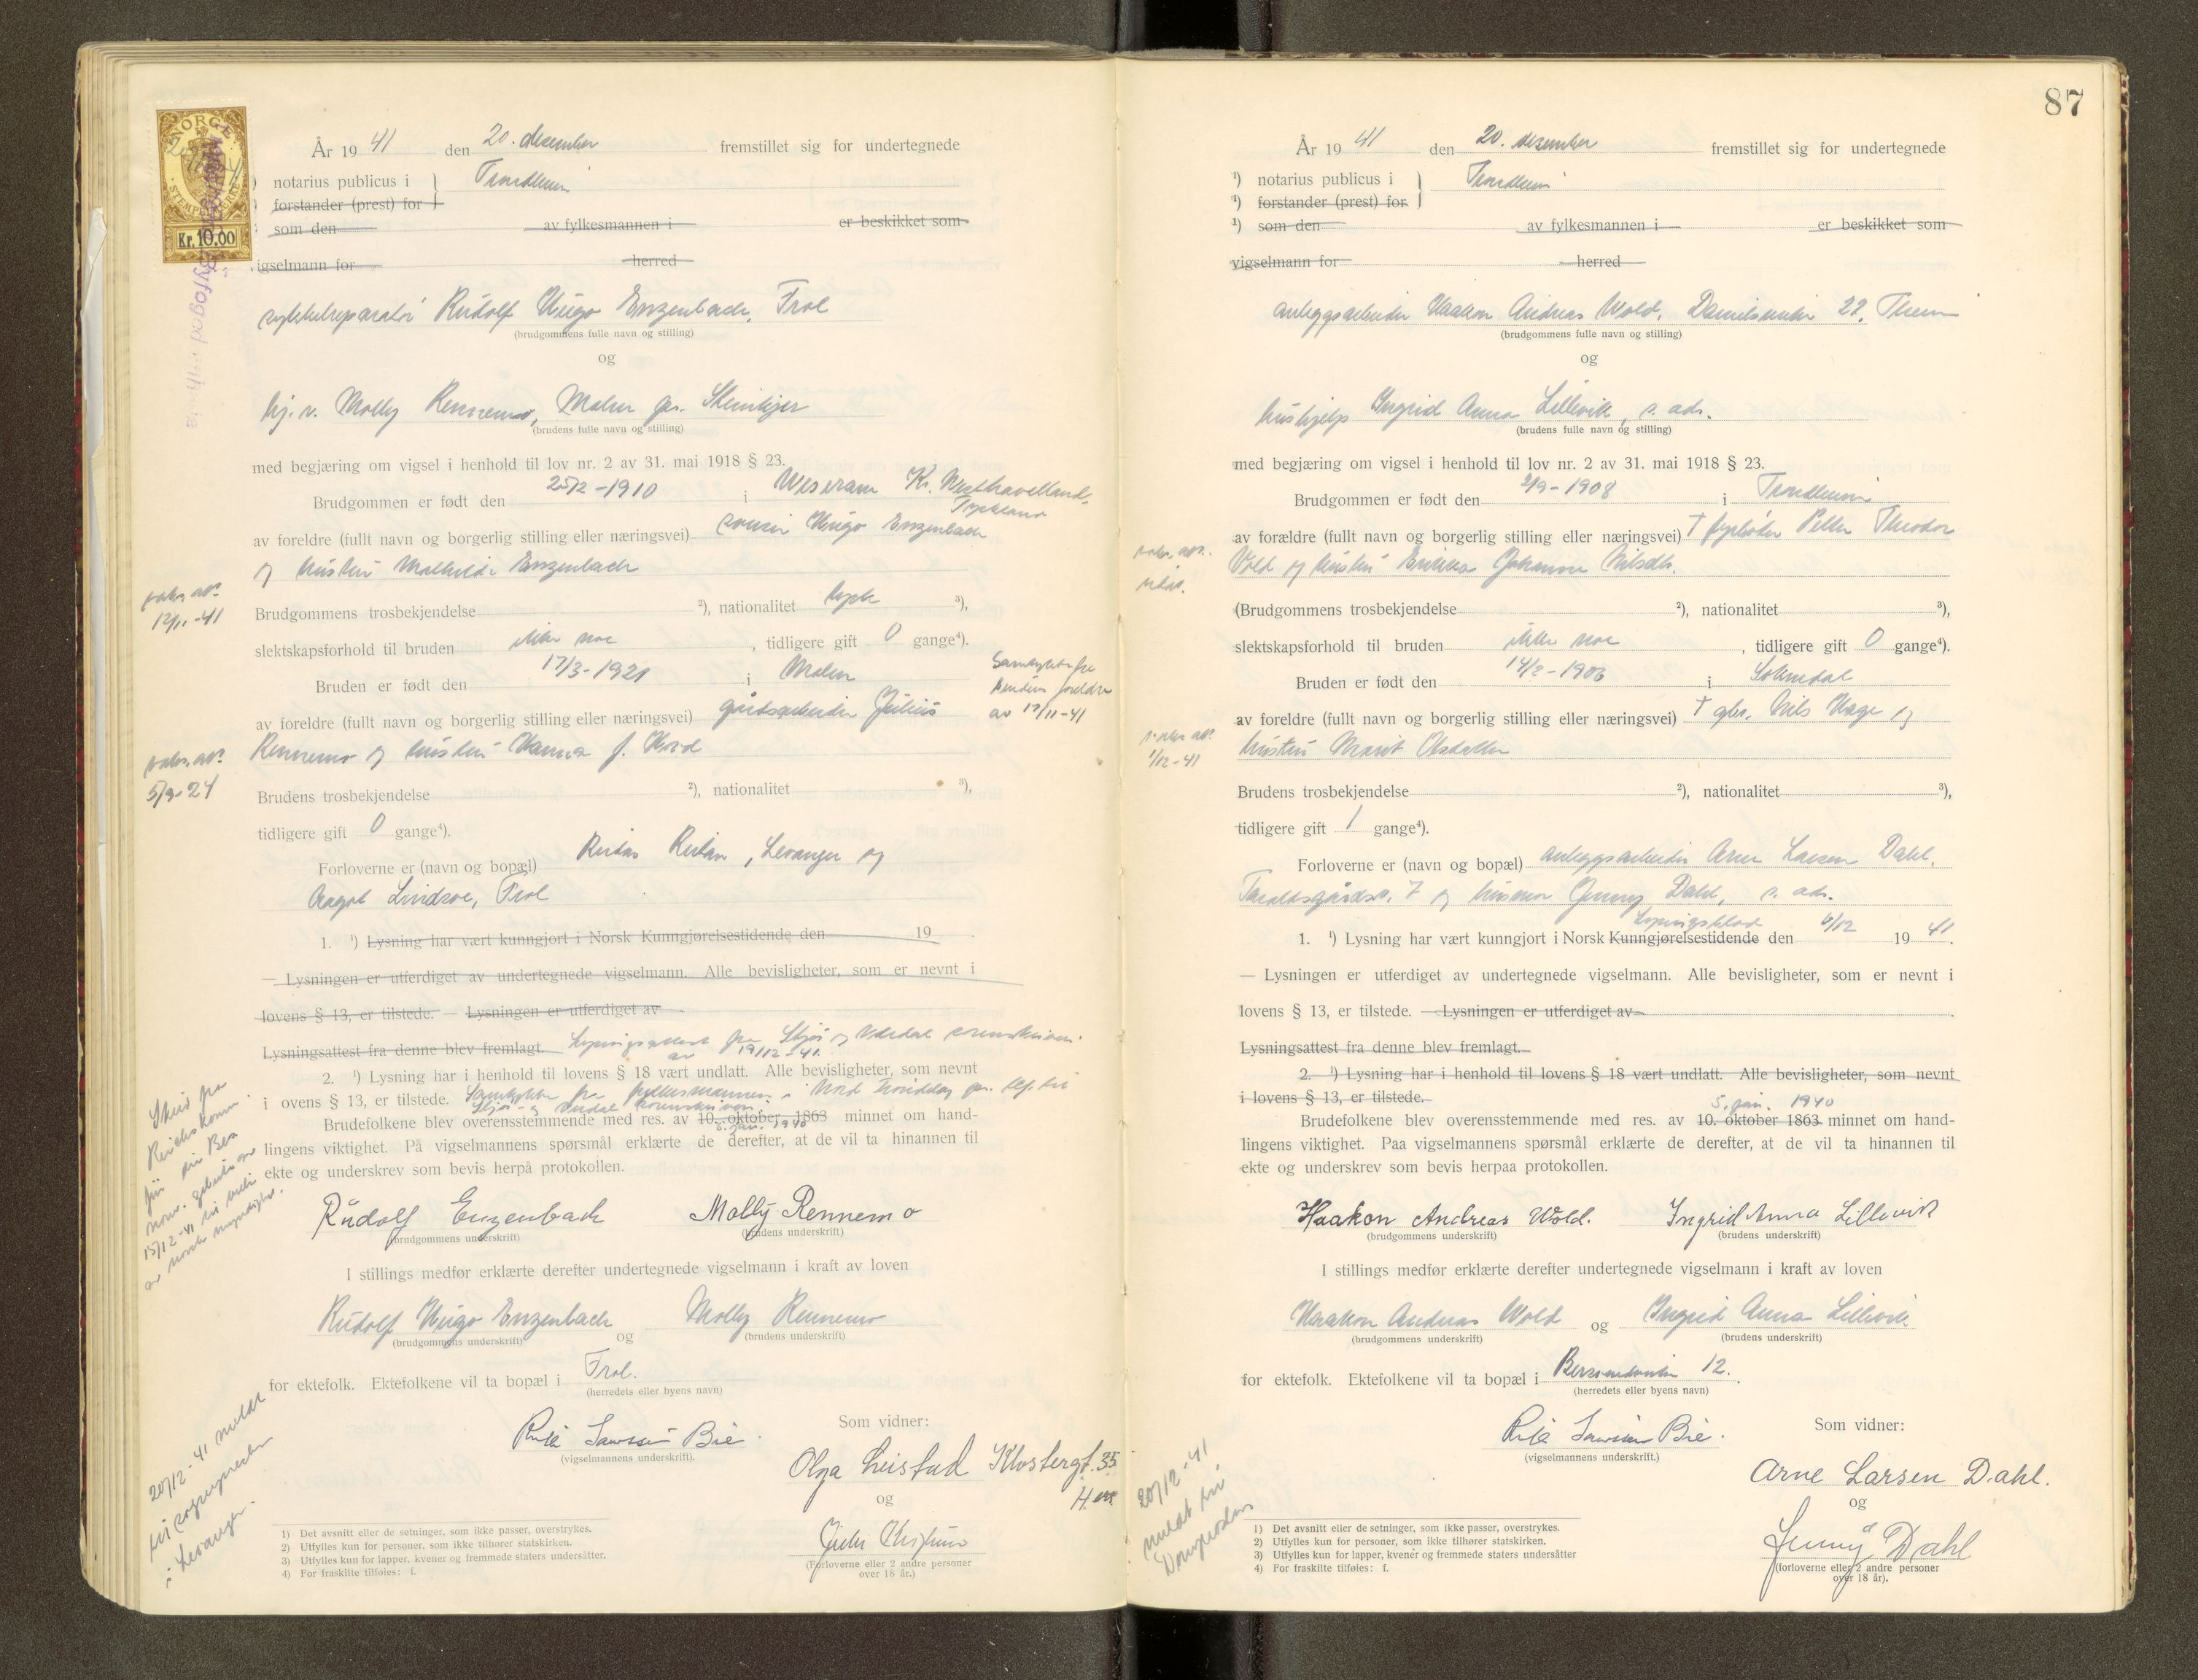 NORGE
STEMPELMERKE
Kr. 10.00
År 1941 den 20. desember fremstillet sig for undertegnede
notarius publicus i Trondheim
forstander (prest) for
som den av fylkesmannen i er beskikket som
vigselmann for herred
Rudolf Hugo Enzenbach, Frol
(brudgommens fulle navn og stilling)
og
Molly Rennemo, Malm pr. Steinkjer
(brudens fulle navn og stilling)
med begjæring om vigsel i henhold til lov nr. 2 av 31. mai 1918 § 23.
Brudgommen er født den 25/2-1910 i Weseram Kr. Westhavelland,
Tyskland
av foreldre (fullt navn og borgerlig stilling eller næringsvei) Hugo Enzenbach
og hustru Mathilde Enzenbach
12/11-41
Brudgommens trosbekjendelse ²), nationalitet tysk ³),
slektskapsforhold til bruden ikke noe, tidligere gift 0 gange⁴).
Bruden er født den 17/3-1921 i Malm
Samtykke fra
brudens foreldre
av 12/11-41
av foreldre (fullt navn og borgerlig stilling eller næringsvei) gårdsarbeider Julius
Rennemo og hustru Hanna f.
5/9-24
Brudens trosbekjendelse ²), nationalitet ³),
tidligere gift 0 gange⁴).
Forloverne er (navn og bopæl) Levanger og
Aagot Lindsoe, Frol
1. ¹) Lysning har vært kunngjort i Norsk Kunngjørelsestidende den 19
— Lysningen er utferdiget av undertegnede vigselmann. Alle bevisligheter, som er nevnt i
lovens § 13, er tilstede. — Lysningen er utferdiget av
Lysningsattest fra denne blev fremlagt. Lysningsattest fra og Verdal sorenskriveri
av 19/12-41.
2. ¹) Lysning har i henhold til lovens § 18 vært undlatt. Alle bevisligheter, som nevnt
i ovens § 13, er tilstede. Samtykke fra fylkesmannen i Nord Trøndelag
og Verdal sorenskriveri
Brudefolkene blev overensstemmende med res. av 10. oktober 1863 minnet om hand-
5. jan. 1940
lingens viktighet. På vigselmannens spørsmål erklærte de derefter, at de vil ta hinannen til
ekte og underskrev som bevis herpå protokollen.
Skriv fra
Reichskomm.
15/12-41
Rudolf Enzenbach Molly Rennemo
(brudgommens underskrift) (brudens underskrift)
I stillings medfør erklærte derefter undertegnede vigselmann i kraft av loven
Rudolf Hugo Enzenbach og Molly Rennemo
(brudgommens underskrift) (brudens underskrift)
for ektefolk. Ektefolkene vil ta bopæl i Frol.
(herredets eller byens navn)
Bie.
(vigselmannens underskrift).
Som vidner:
Olga Leistad Klostergt. 35
og
(Forloverne eller 2 andre personer
over 18 år.)
20/12-41 meldt
til sognepresten
i Levanger.
1) Det avsnitt eller de setninger, som ikke passer, overstrykes.
2) Utfylles kun for personer, som ikke tilhører statskirken.
3) Utfylles kun for lapper, kvener og fremmede staters undersåtter.
4) For fraskilte tilføies: f.
87
År 1941 den 20. desember fremstillet sig for undertegnede
¹) notarius publicus i Trondheim
¹) forstander (prest) for
¹) som den av fylkesmannen i er beskikket som
vigselmann for herred
anleggsarbeider Haakon Andreas Wold, 22, Theim
(brudgommens fulle navn og stilling)
og
hushjelp Ingrid Anna Lillevik, s. adr.
(brudens fulle navn og stilling)
med begjæring om vigsel i henhold til lov nr. 2 av 31. mai 1918 § 23.
Brudgommen er født den 2/9-1908 i Trondheim
av forældre (fullt navn og borgerlig stilling eller næringsvei) † fyrbøter Petter Theodor
Vold og hustru Johanna Nilsdtr.
(Brudgommens trosbekjendelse ²), nationalitet ³),
slektskapsforhold til bruden ikke noe, tidligere gift 0 gange⁴).
Bruden er født den 14/2-1906 i Soknedal
av foreldre (fullt navn og borgerlig stilling eller næringsvei) † gbr. Nils Hage og
hustru Marit Olsdatter
1/12-41
Brudens trosbekjendelse ²), nationalitet ³),
tidligere gift 1 gange⁴).
Forloverne er (navn og bopæl) anleggsarbeider Arne Larsen Dahl,
Taraldsgårdsv. 7 og husmor Jenny Dahl, s. adr.
1. ¹) Lysning har vært kunngjort i Norsk Kunngjørelsestidende den 6/12 1941.
Lysingsblad
— Lysningen er utferdiget av undertegnede vigselmann. Alle bevisligheter, som er nevnt i
lovens § 13, er tilstede. — Lysningen er utferdiget av
Lysningsattest fra denne blev fremlagt.
2. ¹) Lysning har i henhold til lovens § 18 vært undlatt. Alle bevisligheter, som nevnt
i lovens § 13, er tilstede.
5. jan. 1940
Brudefolkene blev overensstemmende med res. av 10. oktober 1863 minnet om hand-
lingens viktighet. Paa vigselmannens spørsmål erklærte de derefter, at de vil ta hinannen til
ekte og underskrev som bevis herpaa protokollen.
Haakon Andreas Wold. Ingrid Anna Lillevik
(brudgommens underskrift) (brudens underskrift)
I stillings medfør erklærte derefter undertegnede vigselmann i kraft av loven
Haakon Andreas Wold og Ingrid Anna Lillevik
(brudgommens underskrift) (brudens underskrift)
for ektefolk. Ektefolkene vil ta bopæl i 12.
(herredets eller byens navn)
Bie.
(vigselmannens underskrift.)
Som vidner:
Arne Larsen Dahl.
og
Jenny Dahl
(forloverne eller 2 andre personer
over 18 år).
20/12-41
meldt til
Domprosten
1) Det avsnitt eller de setninger, som ikke passer, overstrykes.
2) Utfylles kun for personer, som ikke tilhører statskirken.
3) Utfylles kun for lapper, kvener og fremmede staters undersåtter
4) For fraskilte tilføies: f.